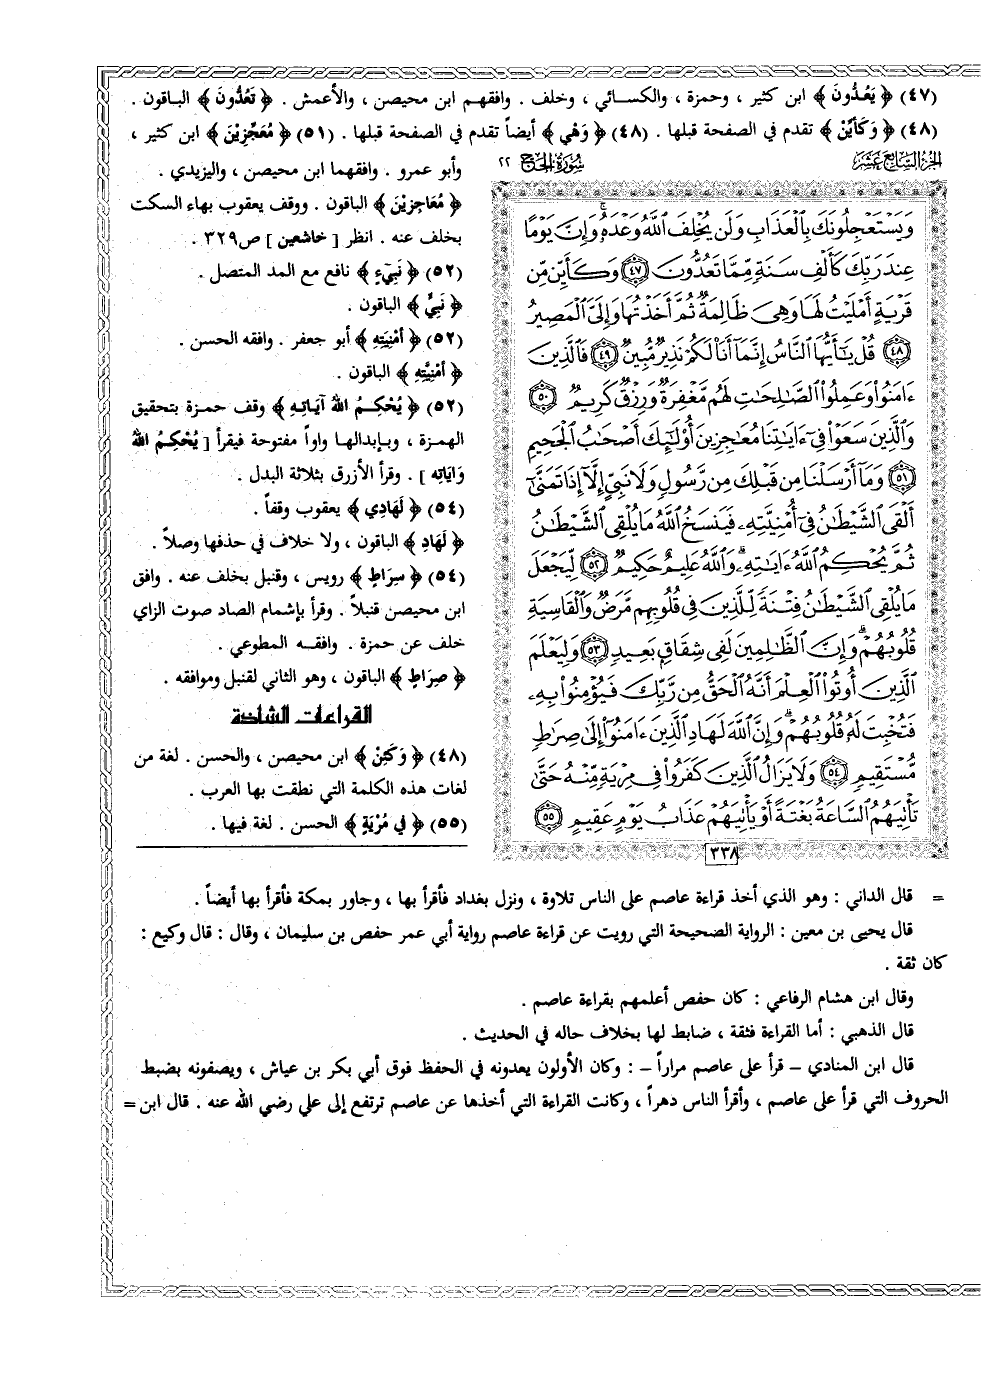 (٤٧) ﴿ يَعُدُّونَ ﴾ ابن كثير ، وحمزة ، والكسائي ، وخلف . وافقهم ابن محيصن ، والأعمش . ﴿ تَعُدُّونَ ﴾ الباقون .
(٤٨) ﴿ وَكَأَيِّنْ ﴾ تقدم في الصفحة قبلها . (٤٨) ﴿ وَهْيَ ﴾ أيضاً تقدم في الصفحة قبلها . (٥١) ﴿ مُعَجِّزِيْنَ ﴾ ابن كثير ،
الجزء السابع عشر
سورة الحج ٢٢
وأبو عمرو . وافقهما ابن محيصن ، واليزيدي .
﴿ مُعَاجِزِيْنَ ﴾ الباقون . ووقف يعقوب بهاء السكت
بخلف عنه . انظر [ خاشعين ] ص٣٢٩ .
(٥٢) ﴿ نَبِيْءٍ ﴾ نافع مع المد المتصل .
﴿ نَبِيٍّ ﴾ الباقون .
(٥٢) ﴿ أُمْنِيَتِهِ ﴾ أبو جعفر . وافقه الحسن .
﴿ أُمْنِيَّتِهِ ﴾ الباقون .
(٥٢) ﴿ يُحْكِمُ اللهُ آيَاتِهِ ﴾ وقف حمزة بتحقيق
الهمزة ، وبإبدالها واواً مفتوحة فيقرأ [ يُحْكِمُ اللهُ
وَايَاتِهِ ] . وقرأ الأزرق بثلاثة البدل .
(٥٤) ﴿ لَهَادِي ﴾ يعقوب وقفاً .
﴿ لَهَادِ ﴾ الباقون ، ولا خلاف في حذفها وصلاً .
(٥٤) ﴿ سِرَاطٍ ﴾ رويس ، وقنبل بخلف عنه . وافق
ابن محيصن قنبلاً . وقرأ بإشمام الصاد صوت الزاي
خلف عن حمزة . وافقه المطوعي .
﴿ صِرَاطٍ ﴾ الباقون ، وهو الثاني لقنبل وموافقه .
القراءات الشاذة
(٤٨) ﴿ وَكَئِنْ ﴾ ابن محيصن ، والحسن . لغة من
لغات هذه الكلمة التي نطقت بها العرب .
(٥٥) ﴿ في مُرْيَةٍ ﴾ الحسن . لغة فيها .
وَيَسْتَعْجِلُونَكَ بِٱلْعَذَابِ وَلَن يُخْلِفَ ٱللَّهُ وَعْدَهُۥ وَإِنَّ يَوْمًا
عِندَ رَبِّكَ كَأَلْفِ سَنَةٍ مِّمَّا تَعُدُّونَ ٤٧ وَكَأَيِّن مِّن
قَرْيَةٍ أَمْلَيْتُ لَهَا وَهِىَ ظَالِمَةٌ ثُمَّ أَخَذْتُهَا وَإِلَىَّ ٱلْمَصِيرُ
٤٨ قُلْ يَـٰٓأَيُّهَا ٱلنَّاسُ إِنَّمَآ أَنَا۠ لَكُمْ نَذِيرٌ مُّبِينٌ ٤٩ فَٱلَّذِينَ
ءَامَنُوا۟ وَعَمِلُوا۟ ٱلصَّـٰلِحَـٰتِ لَهُم مَّغْفِرَةٌ وَرِزْقٌ كَرِيمٌ ٥٠
وَٱلَّذِينَ سَعَوْا۟ فِىٓ ءَايَـٰتِنَا مُعَـٰجِزِينَ أُو۟لَـٰٓئِكَ أَصْحَـٰبُ ٱلْجَحِيمِ
٥١ وَمَآ أَرْسَلْنَا مِن قَبْلِكَ مِن رَّسُولٍ وَلَا نَبِىٍّ إِلَّآ إِذَا تَمَنَّىٰٓ
أَلْقَى ٱلشَّيْطَـٰنُ فِىٓ أُمْنِيَّتِهِۦ فَيَنسَخُ ٱللَّهُ مَا يُلْقِى ٱلشَّيْطَـٰنُ
ثُمَّ يُحْكِمُ ٱللَّهُ ءَايَـٰتِهِۦ ۗ وَٱللَّهُ عَلِيمٌ حَكِيمٌ ٥٢ لِّيَجْعَلَ
مَا يُلْقِى ٱلشَّيْطَـٰنُ فِتْنَةً لِّلَّذِينَ فِى قُلُوبِهِم مَّرَضٌ وَٱلْقَاسِيَةِ
قُلُوبُهُمْ ۗ وَإِنَّ ٱلظَّـٰلِمِينَ لَفِى شِقَاقٍ بَعِيدٍ ٥٣ وَلِيَعْلَمَ
ٱلَّذِينَ أُوتُوا۟ ٱلْعِلْمَ أَنَّهُ ٱلْحَقُّ مِن رَّبِّكَ فَيُؤْمِنُوا۟ بِهِۦ
فَتُخْبِتَ لَهُۥ قُلُوبُهُمْ ۗ وَإِنَّ ٱللَّهَ لَهَادِ ٱلَّذِينَ ءَامَنُوٓا۟ إِلَىٰ صِرَٰطٍ
مُّسْتَقِيمٍ ٥٤ وَلَا يَزَالُ ٱلَّذِينَ كَفَرُوا۟ فِى مِرْيَةٍ مِّنْهُ حَتَّىٰ
تَأْتِيَهُمُ ٱلسَّاعَةُ بَغْتَةً أَوْ يَأْتِيَهُمْ عَذَابُ يَوْمٍ عَقِيمٍ ٥٥
٣٣٨
= قال الداني : وهو الذي أخذ قراءة عاصم على الناس تلاوة ، ونزل بغداد فأقرأ بها ، وجاور بمكة فأقرأ بها أيضاً .
قال يحيى بن معين : الرواية الصحيحة التي رويت عن قراءة عاصم رواية أبي عمر حفص بن سليمان ، وقال : قال وكيع :
كان ثقة .
وقال ابن هشام الرفاعي : كان حفص أعلمهم بقراءة عاصم .
قال الذهبي : أما القراءة فثقة ، ضابط لها بخلاف حاله في الحديث .
قال ابن المنادي – قرأ على عاصم مراراً – : وكان الأولون يعدونه في الحفظ فوق أبي بكر بن عياش ، ويصفونه بضبط
الحروف التي قرأ على عاصم ، وأقرأ الناس دهراً ، وكانت القراءة التي أخذها عن عاصم ترتفع إلى علي رضي الله عنه . قال ابن =